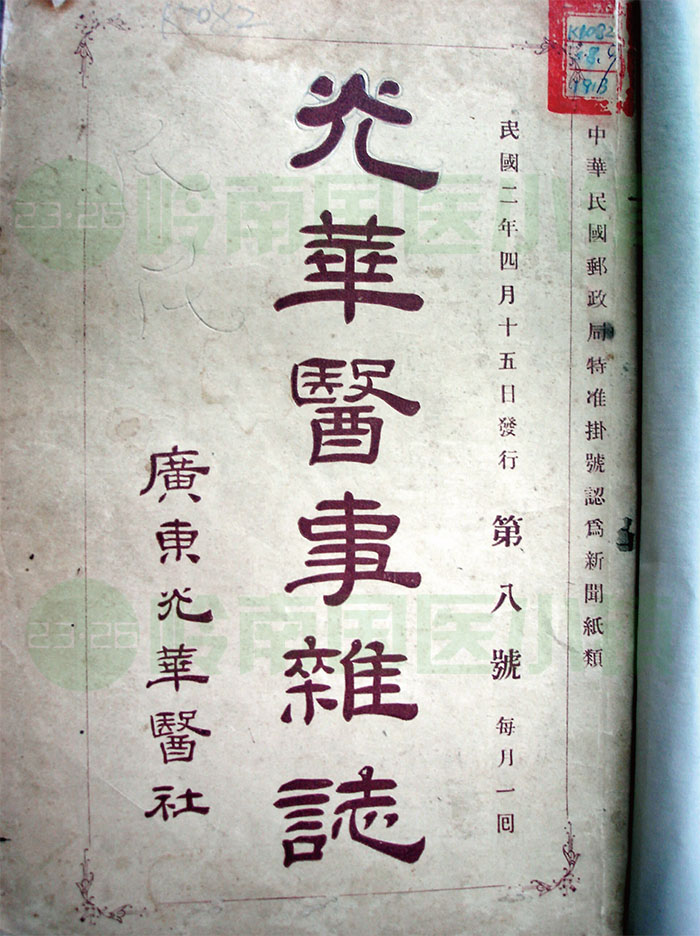 中華民國郵政局特准掛號認爲新聞紙類
民國二年四月十五日發行 第八號 每月一回
光華醫事雜誌
廣東光華醫社
K1082
1913
23·25 岭南国医小
23·25 岭南国医小